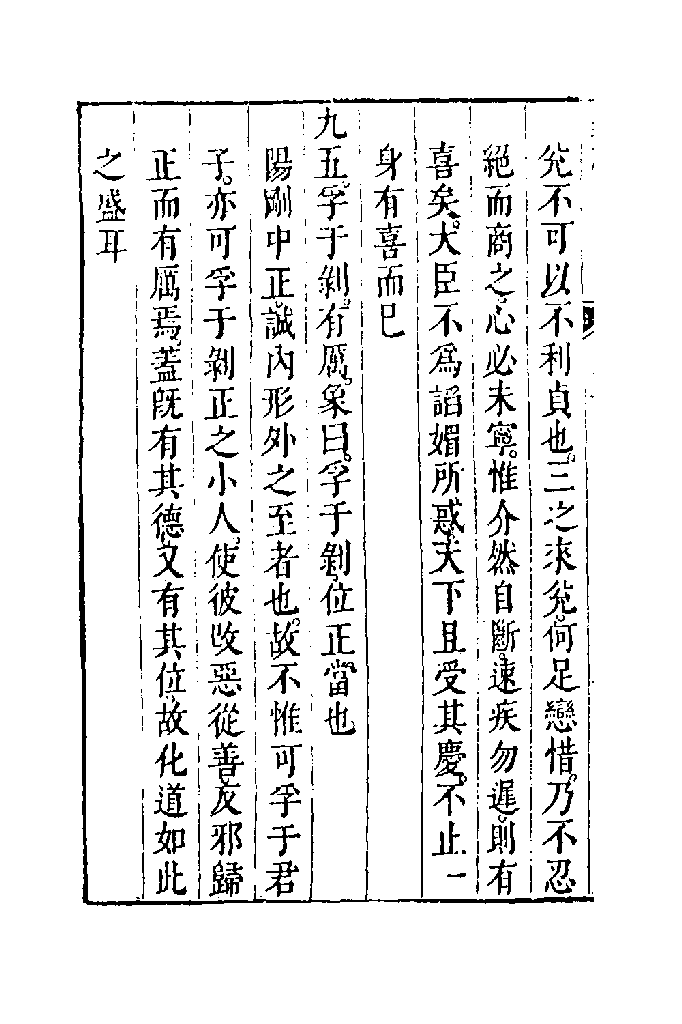 兊不可以不利貞也。三之來兊。何足戀惜。乃不忍
絕而商之。心必未寧。惟介然自斷。速疾勿遲。則有
喜矣。大臣不爲謟媚所惑。天下且受其慶。不止一
身有喜而已
九五。孚于剝。有厲。象曰。孚于剝。位正當也
陽剛中正。誠內形外之至者也。故不惟可孚于君
子。亦可孚于剝正之小人。使彼改惡從善。反邪歸
正而有厲焉。蓋旣有其德。又有其位。故化道如此
之盛耳